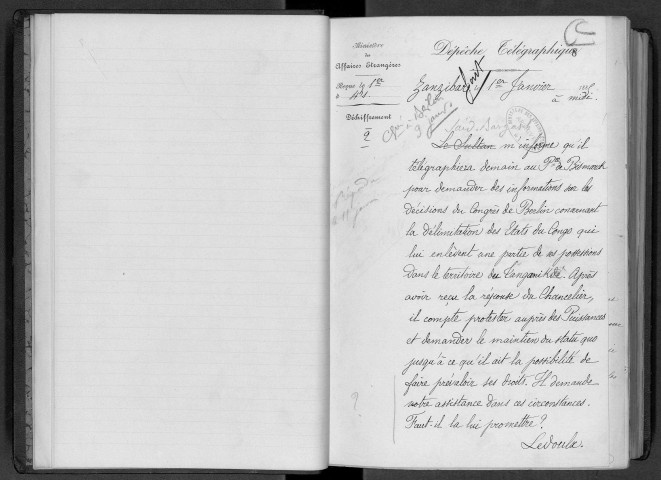 Ministère
des
Affaires Etrangères
Reçue le 1er
Déchiffrement
2
Dépêche Télégraphique
Zanzibar 1er Janvier
à midi.
Le Sultan m'informe qu'il
télégraphiera demain au Pce de Bismarck
pour demander des informations sur les
décisions du Congrès de Berlin concernant
la délimitation des Etats du Congo qui
lui enlèvent une partie de ses possessions
dans le territoire du Tanganika. Après
avoir reçu la réponse du Chancelier,
il compte protester auprès des Puissances
et demander le maintien du statu quo
jusqu'à ce qu'il ait la possibilité de
faire prévaloir ses droits. Il demande
votre assistance dans ces circonstances.
Faut-il la lui promettre?
Ledoulx.
?